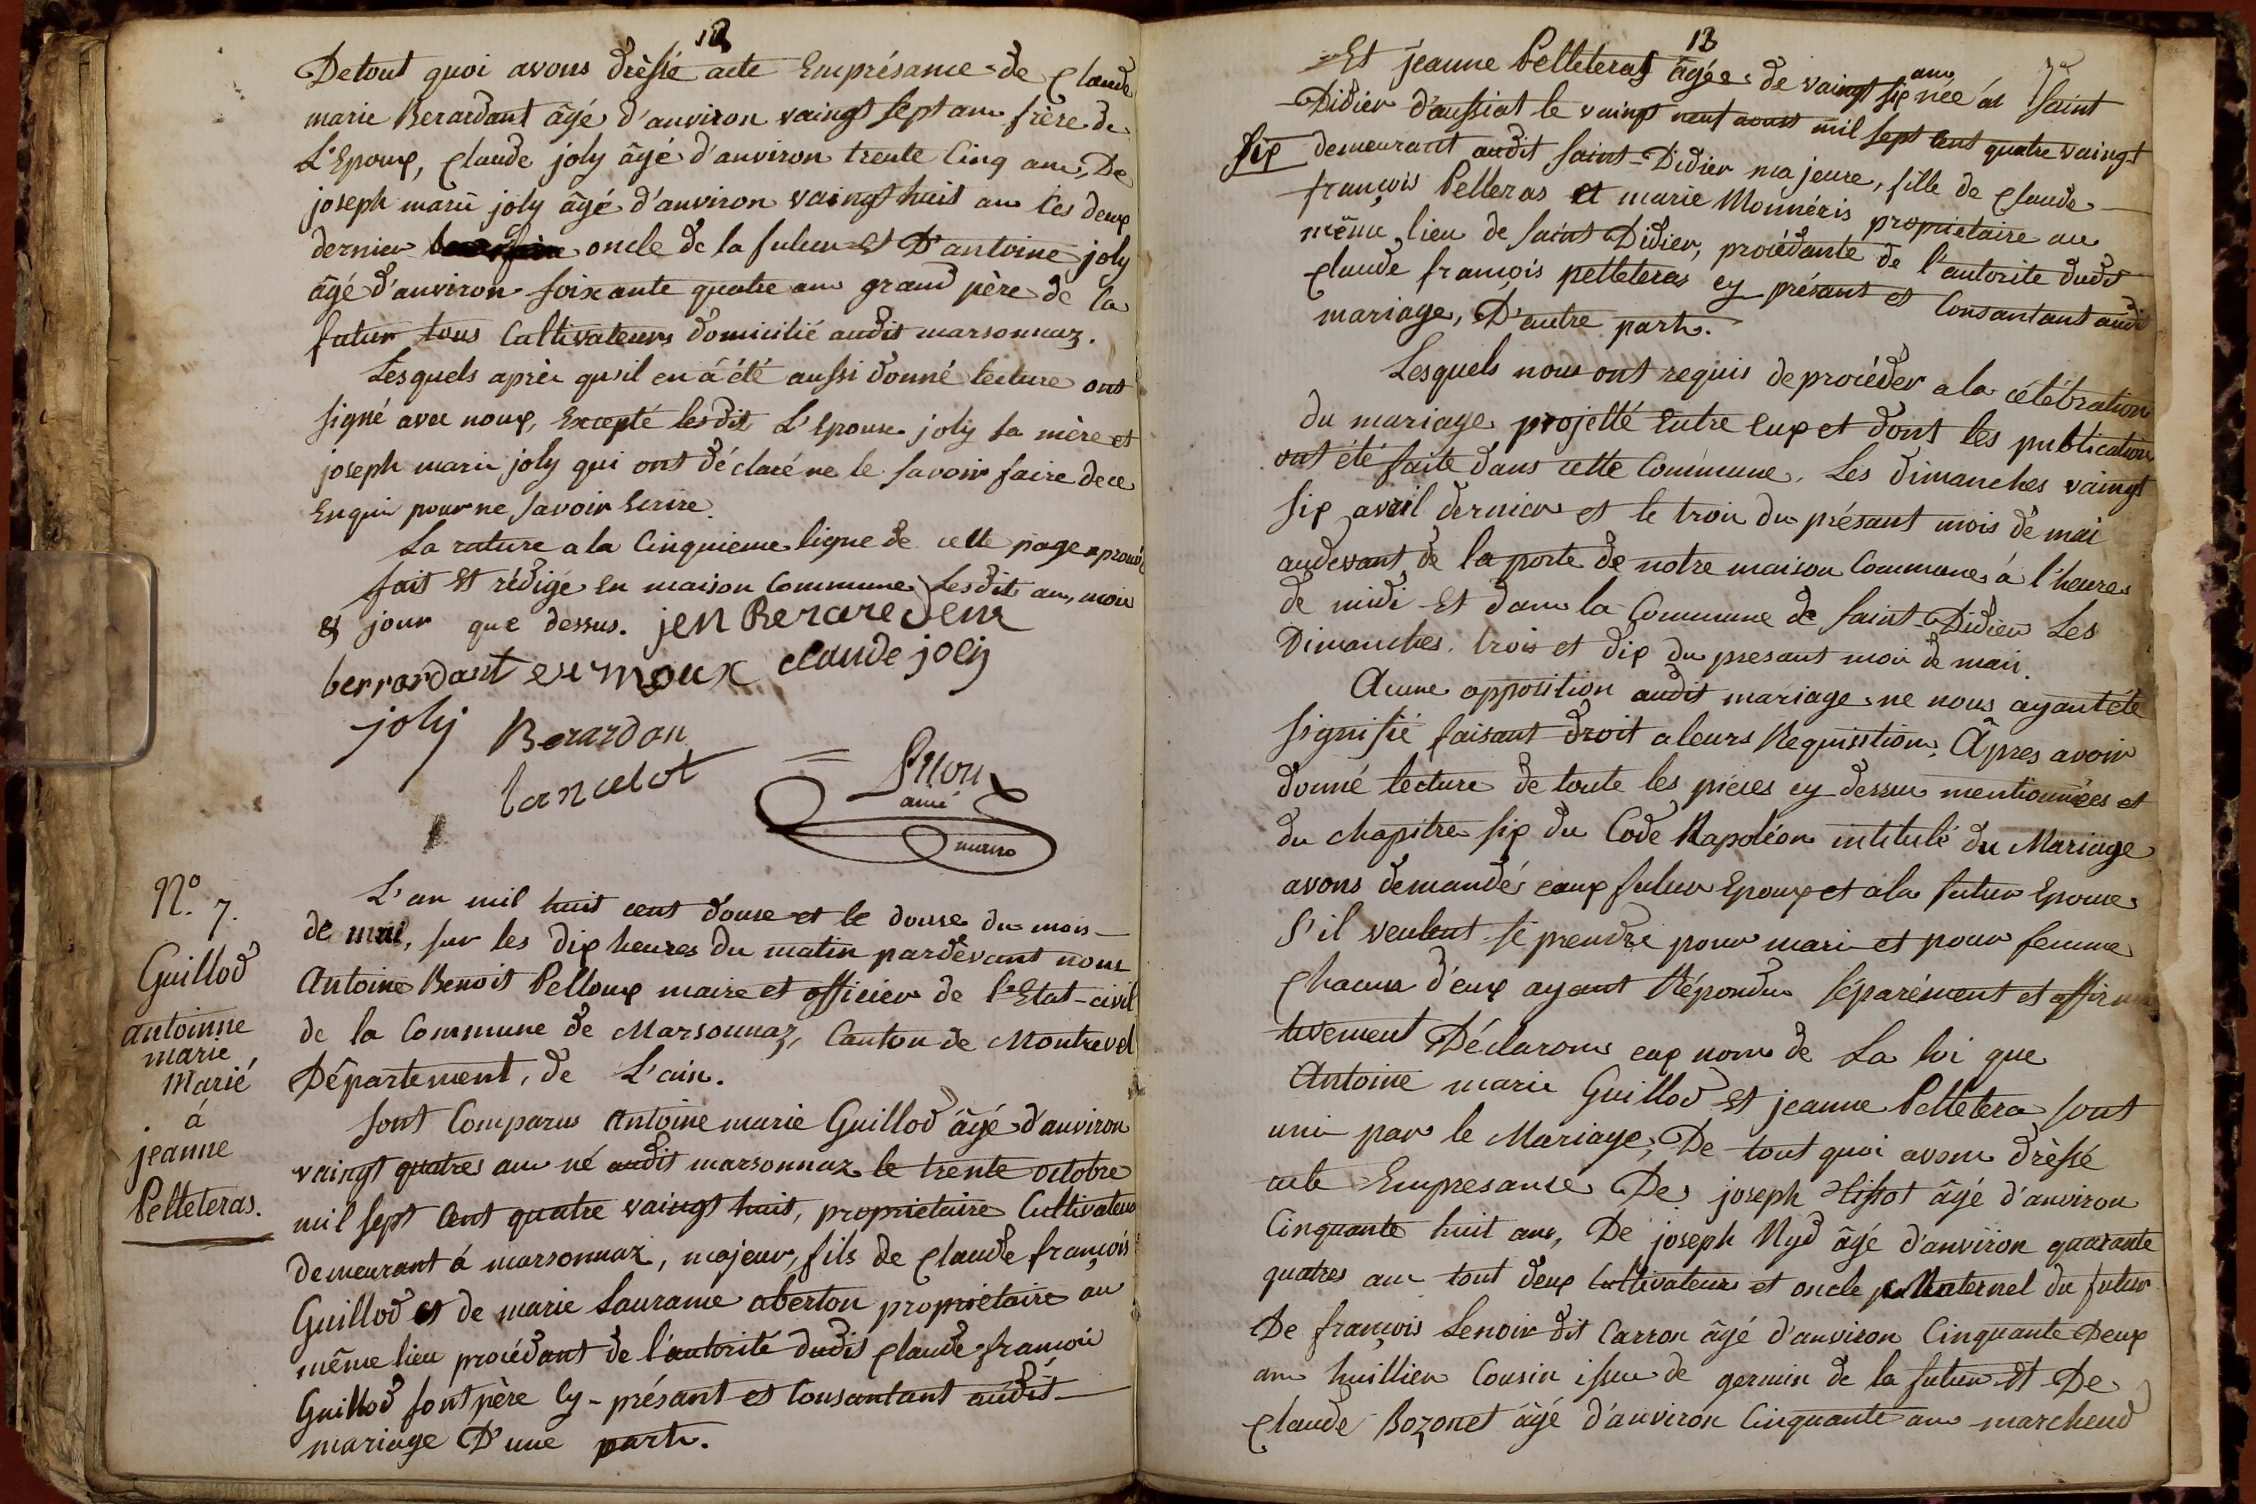 12
Detout quoi avons drèssé acte Emprésance de Claude
marie Berardant âgé d'anviron vaingt sept ans frère de
L'Epoux, Claude joly âgé d'anviron trente Cinq ans, De
joseph marie joly âgé d'anviron vaingt huit ans Ces deux
dernier oncle de la futur et D'antoine joly
âgé d'anviron soixante quatre ans grand père de la
futur tous Cultivateurs domicilié audit marsonnaz.
Lesquels après qu'il en á été aussi donné lecture ont
signé avec noux, Excepté lesdit L'Epouse joly sa mère et
joseph marie joly qui ont déclaré ne le savoir faire dece
Enquis pour ne savoir Ecrire.
La rature a la Cinquieme ligne de cette page aprouvé
fait et rédigé en maison Commune, Lesdit an, mois
et jour que dessus. jen Berare dem
berrardant claude joly
joly Berardan
lancelot
ainé
maire
Nº. 7.
Guillod
antoinne
marie,
Marié
á
jeanne
Pelleteras.
L'an mil huit cent douse et le douse du mois
de mai, sur les dix heures du matin pardevant nous
Antoine Benoit Pelloux maire et officier de l'Etat-civil
de la Commune de Marsonnaz, Canton de Montrevel
Département, de L'ain.
sont Comparus Antoine marie Guillod âgé d'anviron
vaingt quatres ans né audit marsonnaz le trente octobre
mil sept Cent quatre vaingt huit, propriétaire Cultivateur
demeurant á marsonnaz, majeur, fils de Claude françois
Guillod et de marie Laurame aberton propriétaire au
même lieu procédant de l'autorité dudis Claude françois
Guillod sont père Cy-présant et Consantant audit
mariage D'une parts.
13
Et jeanne Pelleteras âgée de vaingt six ans née á Saint
Didier d'aussiat le vaingt neuf aoust mil sept Cent quatre vaingt
six demeurant audit Saint-Didier majeure, fille de Claude
françois Pelleras et marie Monnéris propriétaire au
même lieu de Saint Didier, procédante de l'autorite dudit
Claude françois pelleteras cy présant et Consantant audi
mariage, D'autre parts.
Lesquels nous ont requis deprocéder a la célébration
du mariage projetté Entre eux et dont les publication
ont été faite dans cette Commune. Les dimanches vaingt
six avril dernier et le trois du présant mois de mai
audevant de la porte de notre maison Commune á l'heure
de midi Et dans la Commune de Saint Didier Les
Dimanches trois et dix du presant mois de mai.
Aucune opposition audit mariage ne nous ayant été
signifié faisant droit a leurs Requisition. Âpres avoir
donné lecture de toute les piéces cy dessus mentionnées et
du chapitre six du Code Napoléon intitulé du Mariage
avons demandés eaux futur Epoux et a la futur Epouse
S'il veulent se prendre pour mari et pour femme
Chacun d'eux ayant Répondu séparément et affirma
tivement Déclarons eaux nom de La loi que
Antoine marie Guillod et jeanne Pelletera sont
uni par le Mariage, De tout quoi avons drèssé
acte Empresance De joseph Tissot âgé d'anviron
Cinquante huit ans, De joseph Nyd âgé d'anviron quarante
quatres ans tout deux Cultivateurs et oncle maternel du futur
De françois Lenoir dit Carron âgé d'anviron Cinquante Deux
ans huillier Cousin issue de germin de la futur et De
Claude Bozonet âgé d'anviron Cinquante ans marchend